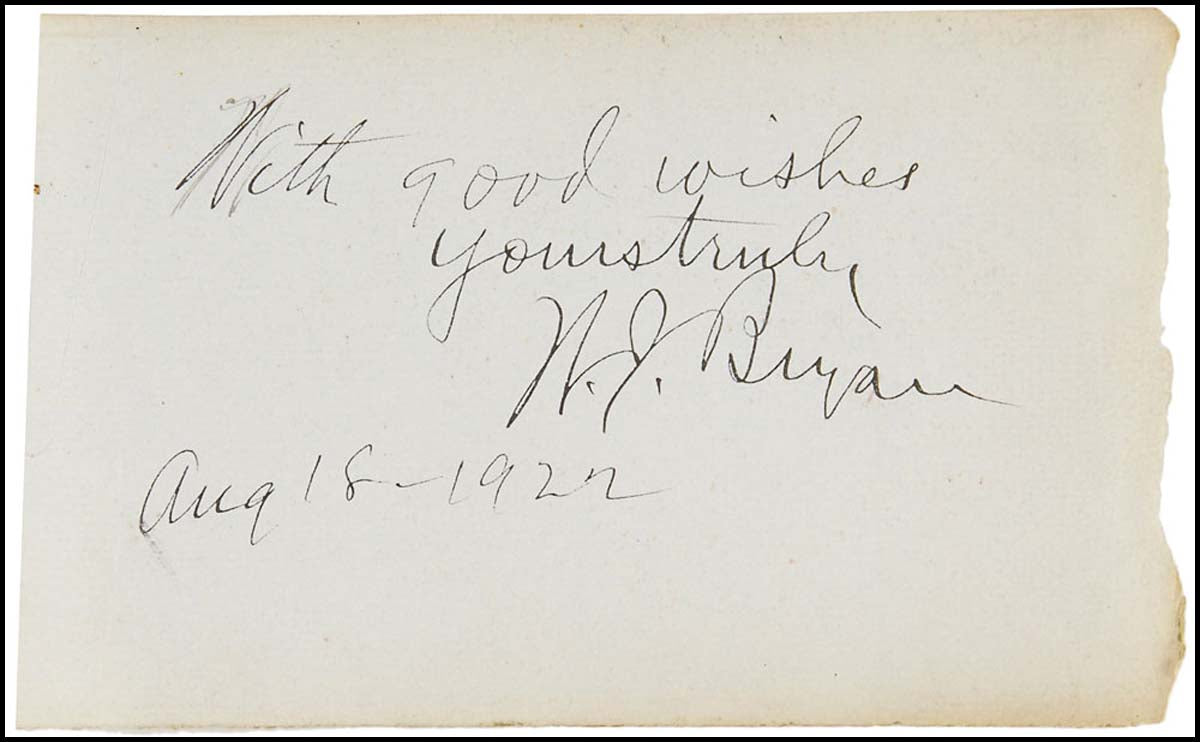 With good wishes
yours truly,
W. J. Bryan
Aug 18 - 1922